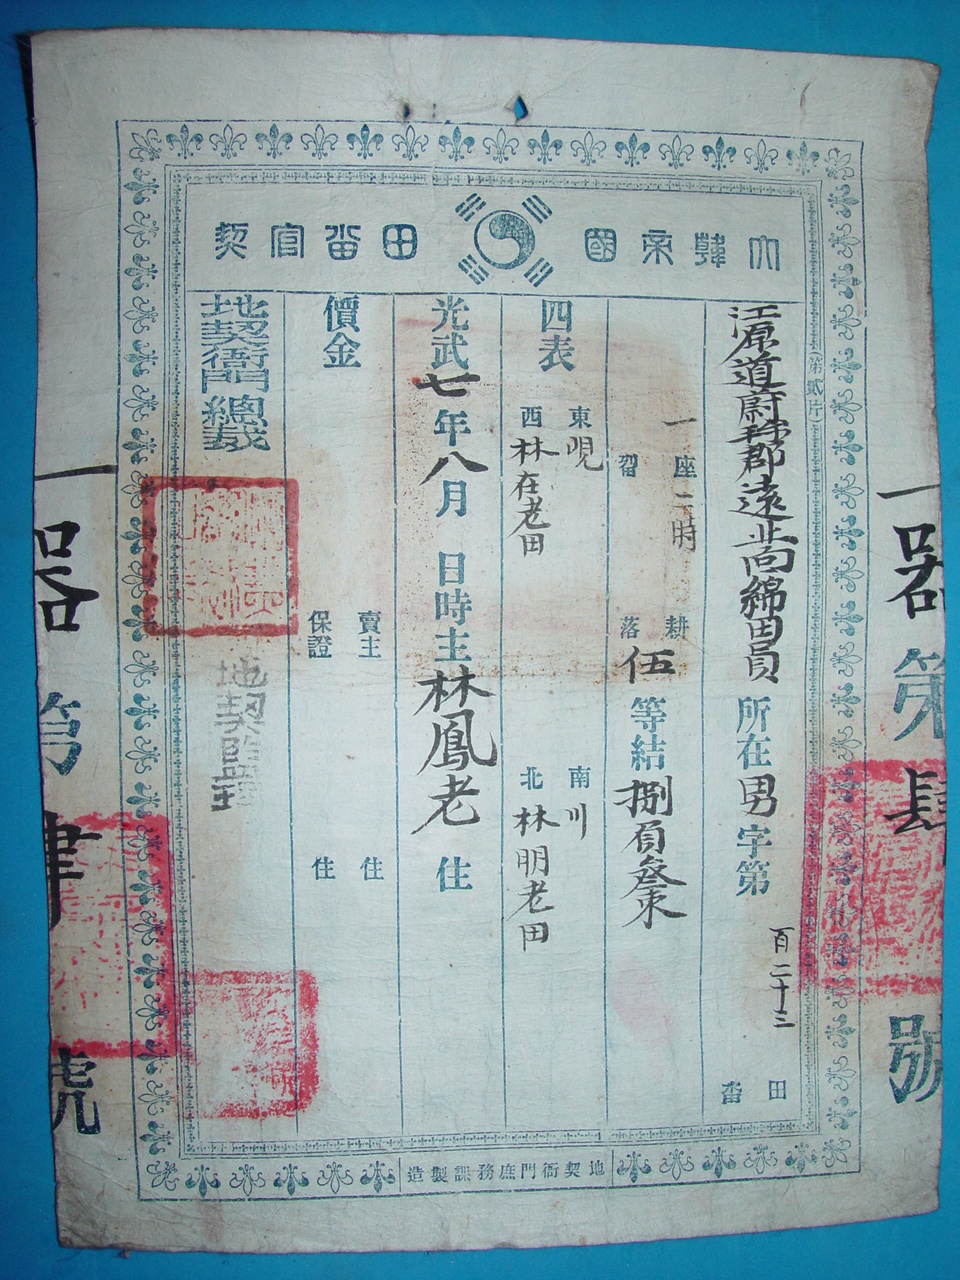 大韓帝國 田畓官契
(第貳片)
江原道蔚珍郡遠北面 所在男字第 百二十三 田畓
一座 二時耕
畓 落 伍等結 捌負 束
四表
東 峴 南 川
西 林在老田 北 林明老田
光武七年八月 日時主林鳳老 住
價金
賣主 住
保證 住
地契衙門總裁
地契監理
地契衙門庶務課製造
第肆號
第 號